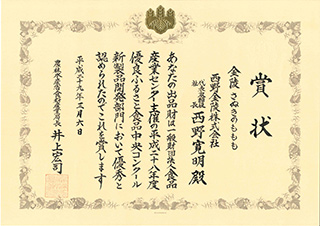 賞状
金陵 さぬきのももも
西野金陵株式会社
代表取締役
西野寛明殿
あなたの出品財は一般財団法人食品
産業センター主催の平成二十八年度
優良ふるさと食品中央コンクール
新製品開発部門において優秀と
認められたのでこれを賞します
平成二十九年三月六日
農林水産省食料産業局長 井上宏司